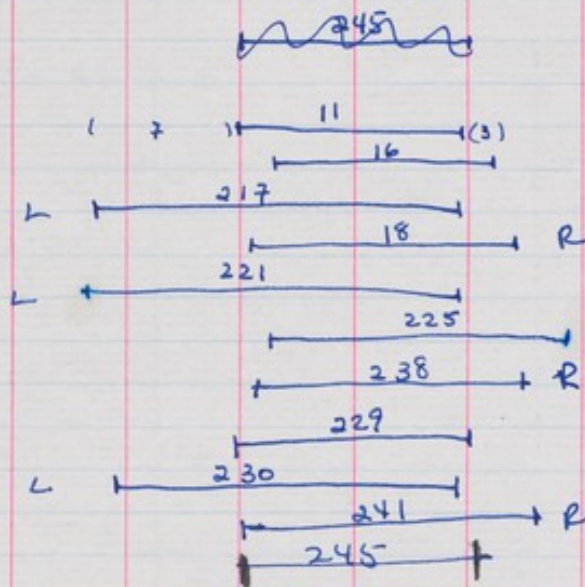 245
( 7 ) 11 (3)
16
L 217
18 R
L 221
225
238 R
229
L 230
241 R
245